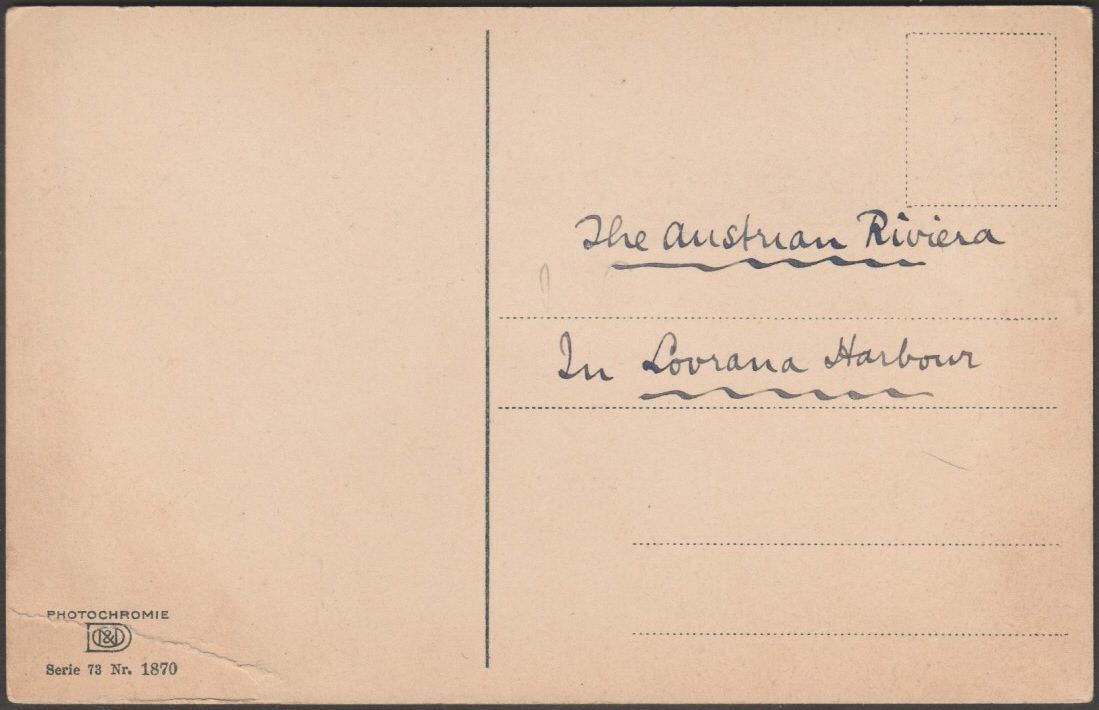 The Austrian Riviera
In Lovrana Harbour
PHOTOCHROMIE
Serie 73 Nr. 1870